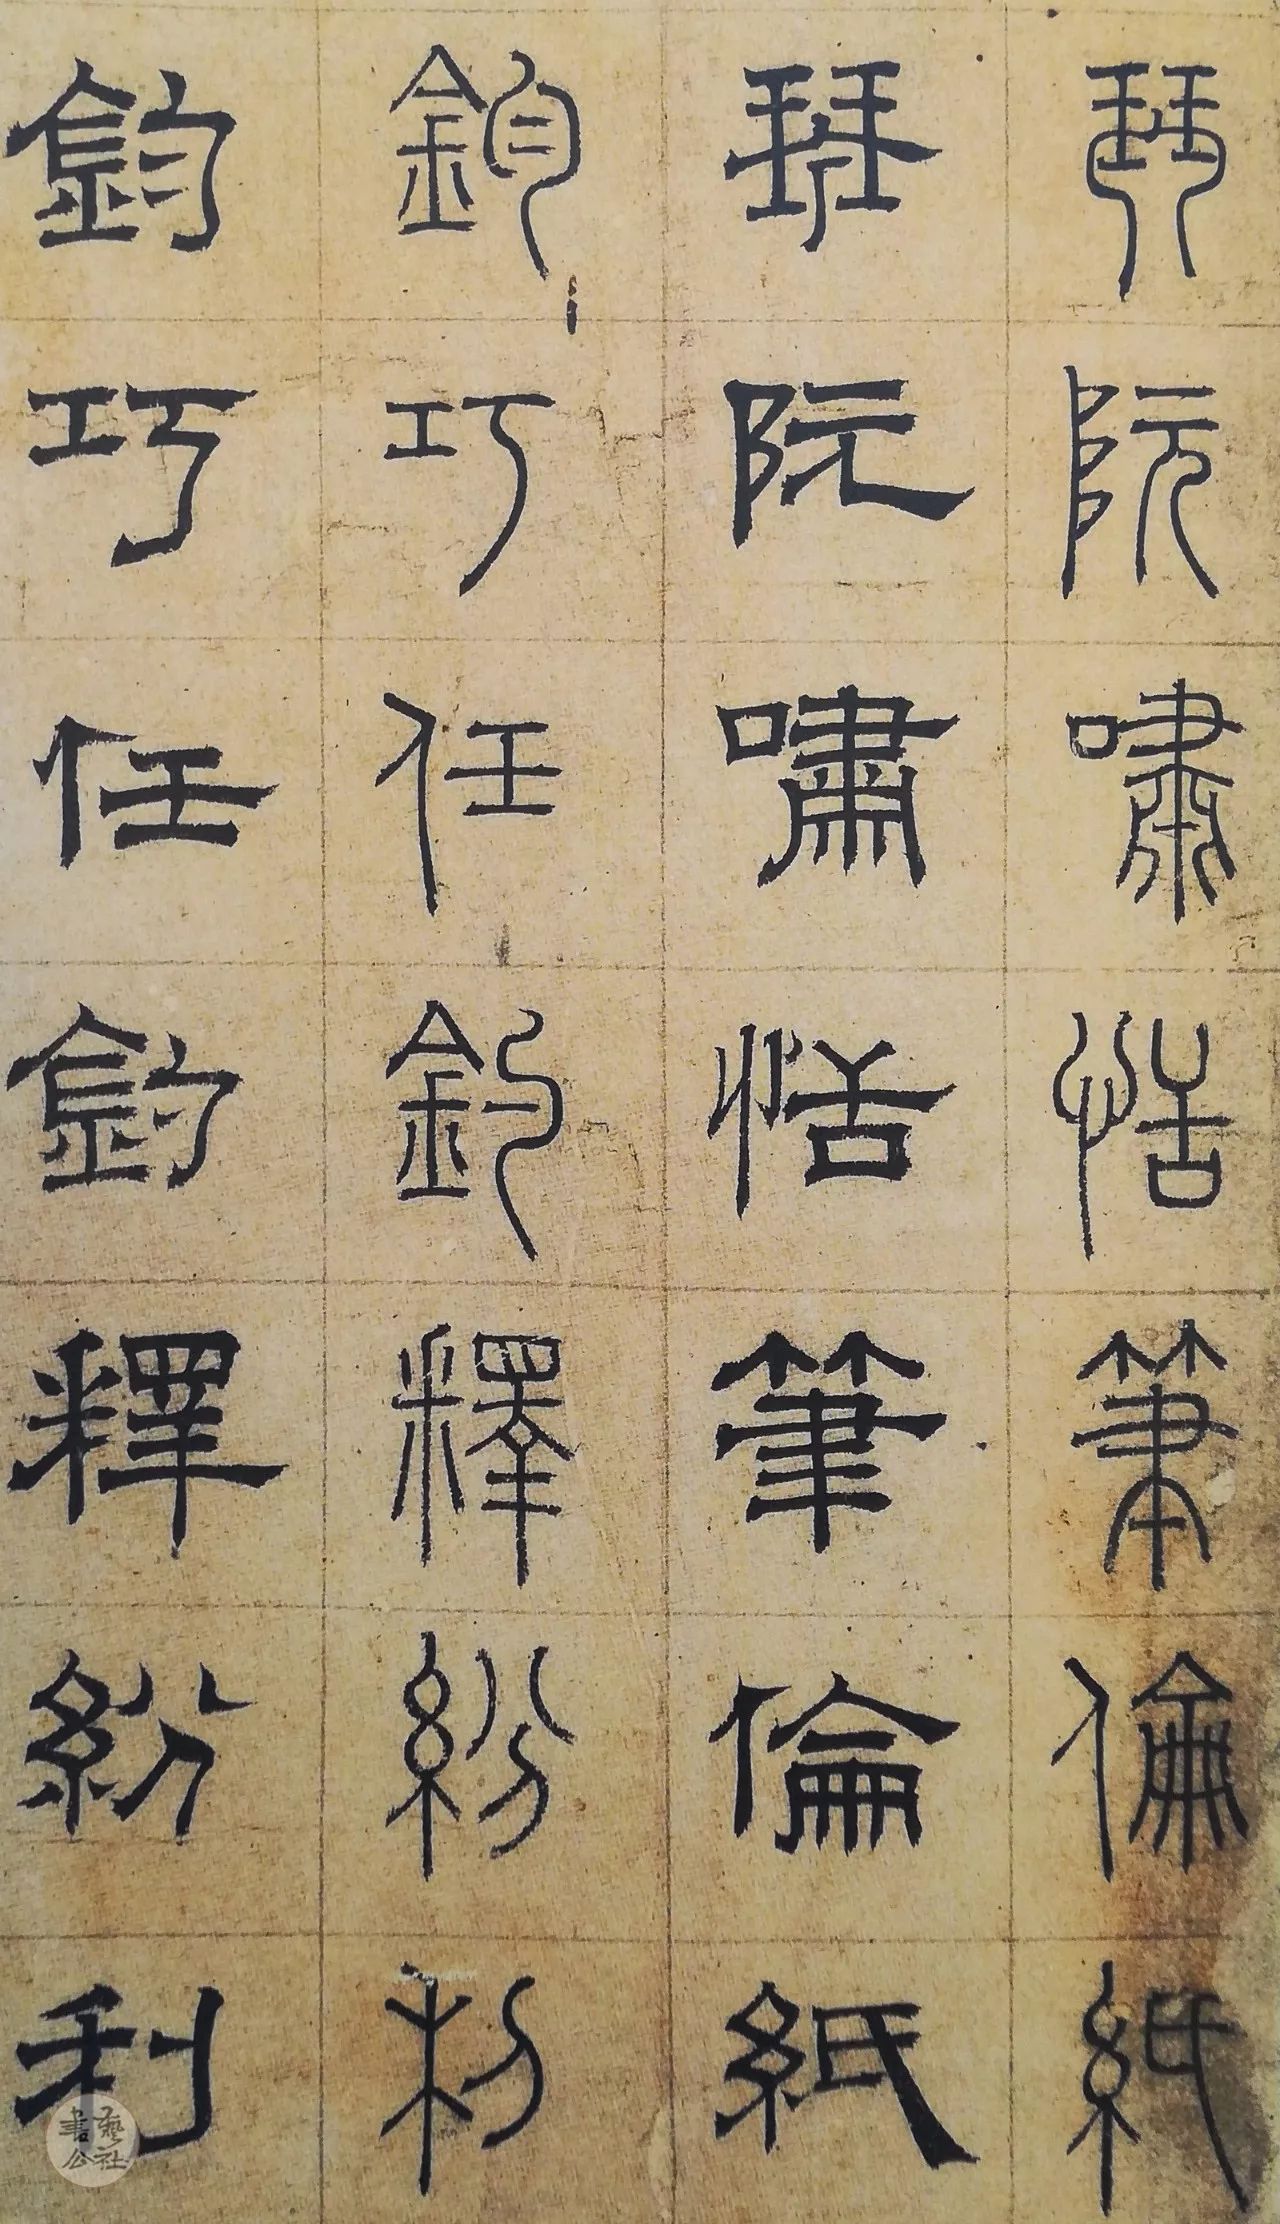 琴阮嘯恬筆倫紙
琴阮嘯恬筆倫紙
鈞巧任釣釋紛利
鈞巧任釣釋紛利
書藝公社